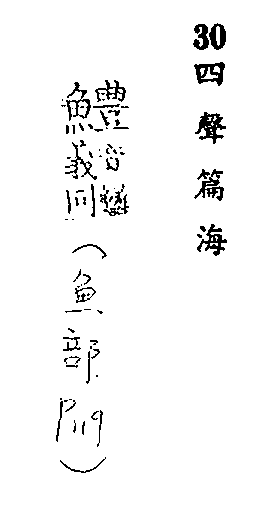 30四聲篇海
鱧音義同(魚部P119)